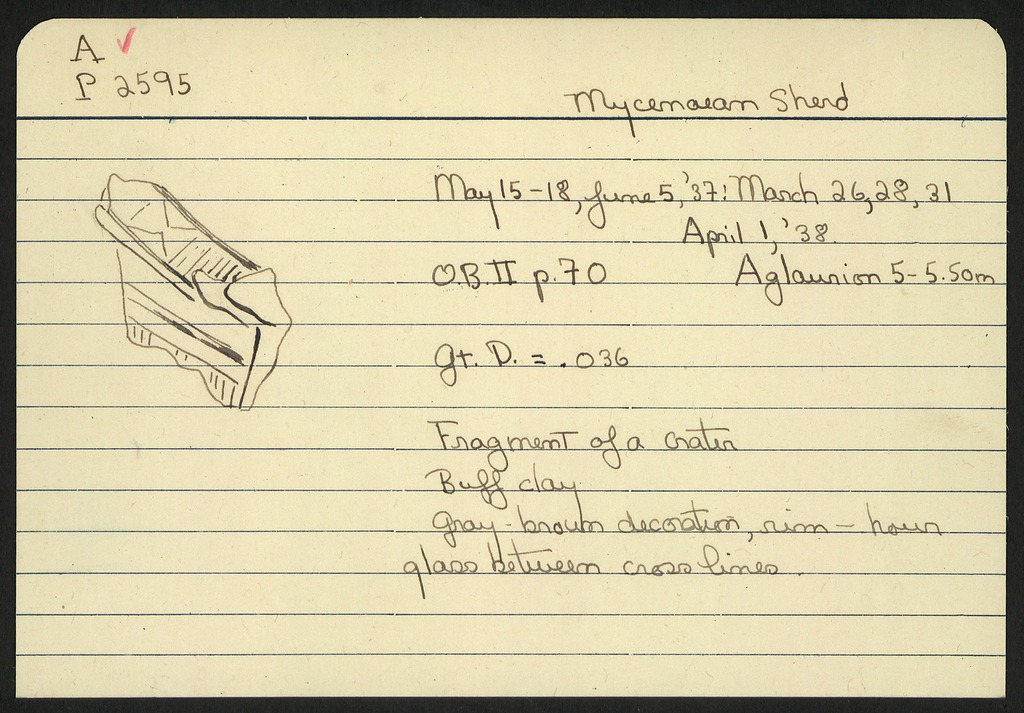 A ✓
P 2595
Mycenaean Sherd
May 15-18, June 5, '37: March 26, 28, 31
April 1, '38.
O.B. II p. 70 Aglaurion 5-5.50m
Gt. D. = .036
Fragment of a crater
Buff clay
Gray-brown decoration, rim - hour
glass between cross lines.